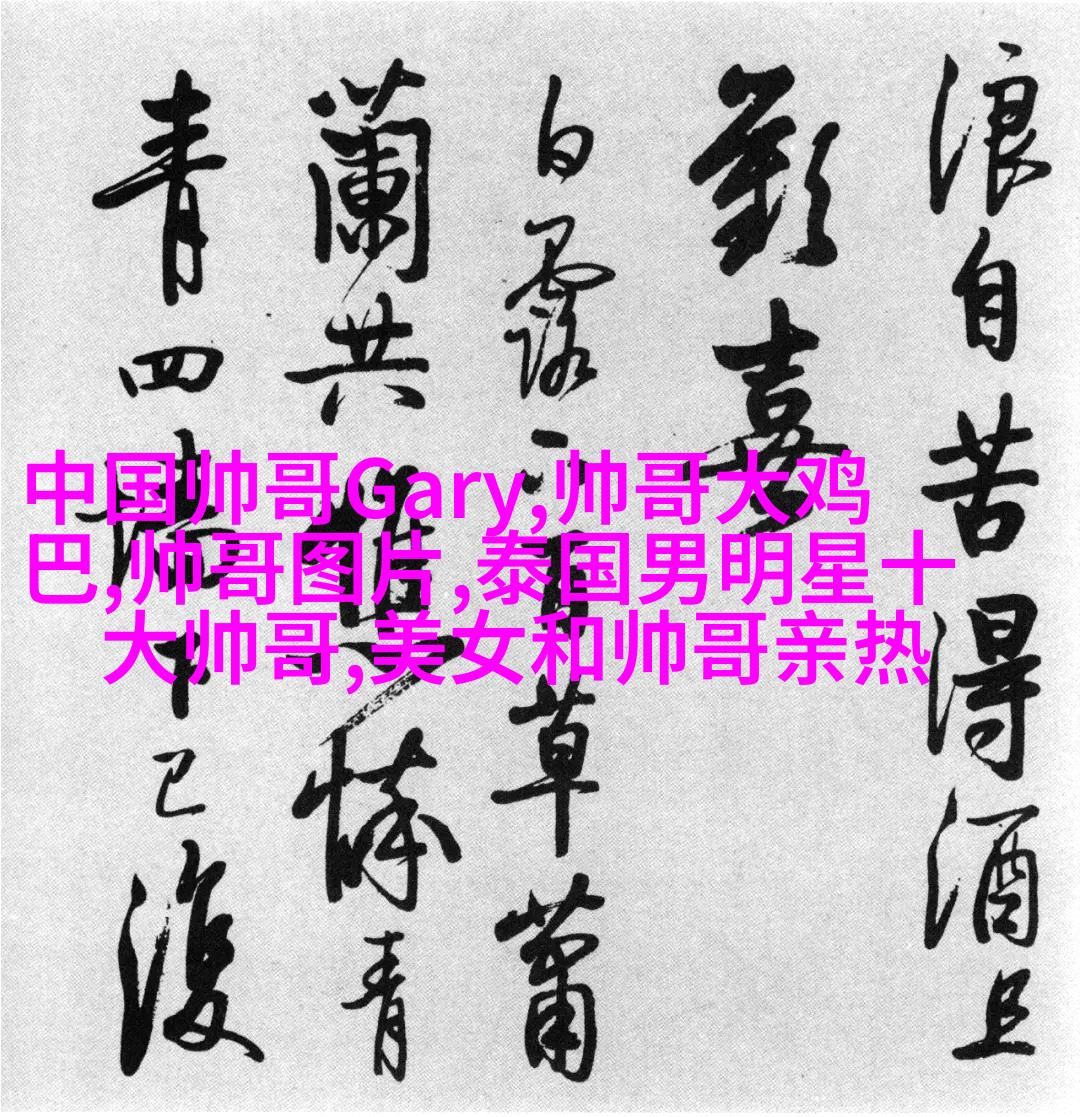 浪自苦得酒且
歡嘉
白露下百草蕭
蘭共雕悴青
青四牆下已復
中国帅哥Gary,帅哥大鸡
巴,帅哥图片,泰国男明星十
大帅哥,美女和帅哥亲热